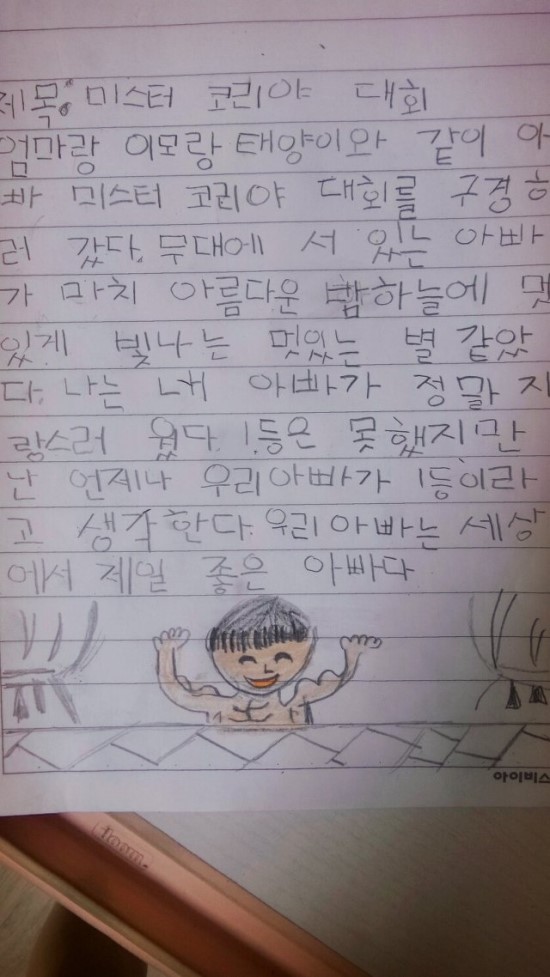 제목: 미스터 코리아 대회
엄마랑 이모랑 태양이와 같이 아
빠 미스터 코리야 대회를 구경하
러 갔다. 무대에 서 있는 아빠
가 마치 아름다운 밤하늘에 멋
있게 빛나는 멋있는 별 같았
다. 나는 내 아빠가 정말 자
랑스러 웠다. 1등은 못했지만
난 언제나 우리아빠가 1등이라
고 생각한다. 우리아빠는 세상
에서 제일 좋은 아빠다
아이비스